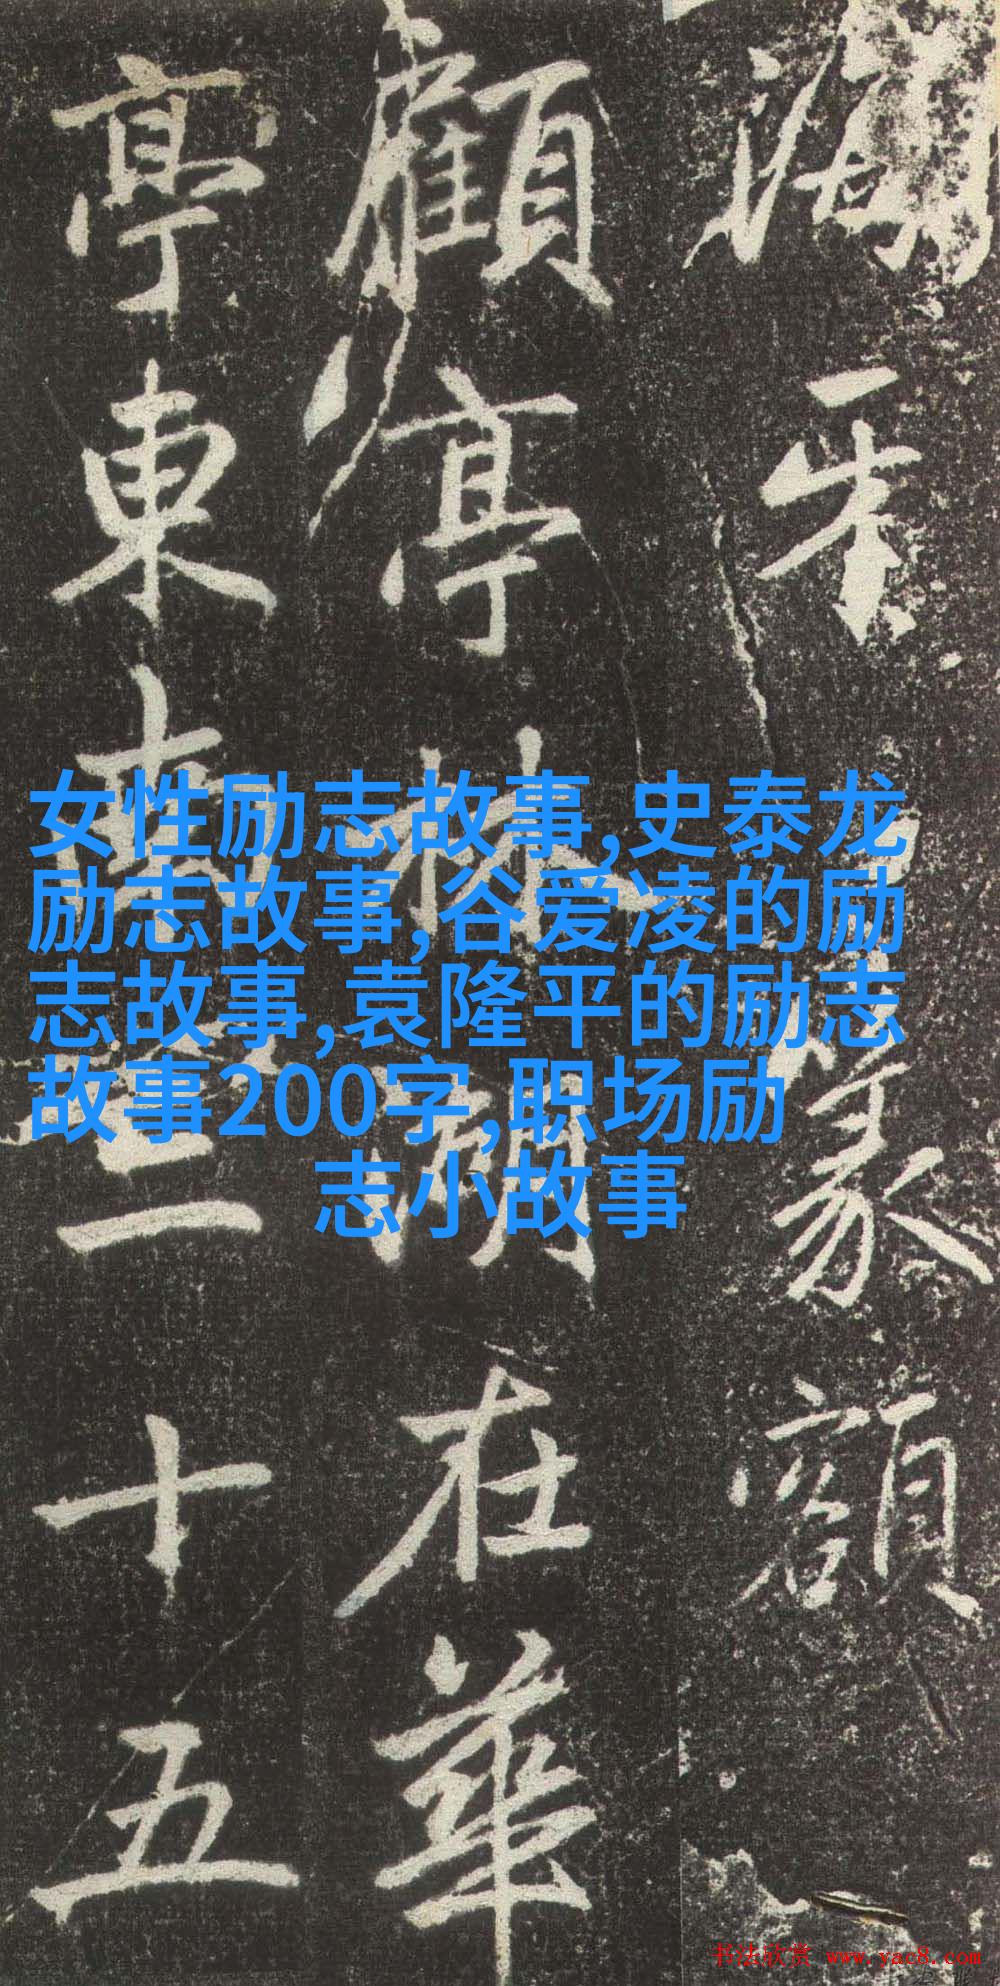 篆額
顧亭林湖在華
亭東南三十五
女性励志故事,史泰龙
励志故事,谷爱凌的励
志故事,袁隆平的励志
故事200字,职场励
志小故事
书法欣赏 www.yac8.com